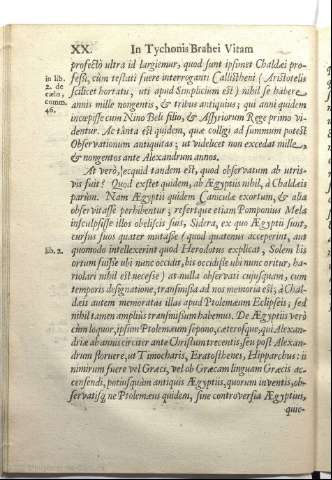 XX. In Tychonis Brahei Vitam
profectò ultra id largiemur, quod sunt ipsimet Chaldæi pro-
fessi, cùm testati fuere interroganti Callistheni (Aristotelis
scilicet hortatu, uti apud Simplicium est) nihil se habere
annis mille nongentis, & tribus antiquius; qui anni quidem
incœpisse cum Nino Beli filio, & Assyriorum Rege primo vi-
dentur. Ac tanta est quidem, quæ colligi ad summum potest
Observationum antiquitas; ut videlicet non excedat mille,
& nongentos ante Alexandrum annos.
in lib.
2. de
cælo,
comm.
46.
At verò, ecquid tandem est, quod observatum ab utris-
vis fuit? Quod exstet quidem, ab Ægyptiis nihil, à Chaldæis
parùm. Nam Ægyptii quidem Caniculæ exortum, & alia
observitasse perhibentur; refertque etiam Pomponius Mela
insculpsisse illos obeliscis suis, Sidera, ex quo Ægyptii sunt,
cursus suos quater mutasse (quod quatenus acceperint, aut
quomodo intellexerint quod Herodotus explicat, Solem bis
ortum fuisse ubi nunc occidit, bis occidisse ubi nunc oritur, ha-
riolari nihil est necesse) at nulla observati cujusquam, cum
temporis designatione, transmissa ad nos memoria est; à Chal-
dæis autem memoratas illas apud Ptolemæum Eclipseis; sed
nihil tamen ampliùs transmissum habemus. De Ægyptiis verò
cùm loquor, ipsum Ptolemæum sepono, cæterosque, qui Alexan-
driæ ab annis circiter ante Christum trecentis, seu post Alexan-
drum floruere, ut Timocharis, Eratosthenes, Hipparchus: ii
nimirum fuere vel Græci, vel ob Græcam linguam Græcis ac-
censendi, potiusquàm antiquis Ægyptiis, quorum inventis, ob-
servatisq; ne Ptolemæus quidem, sine controversia Ægyptius,
lib. 2.
quic-